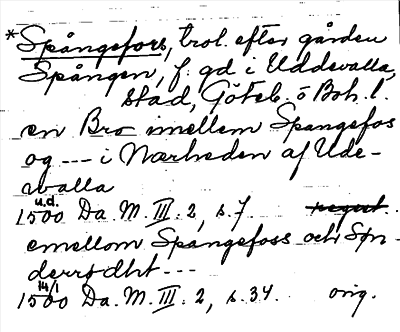 *Spångefors, trol. efter gården
Spången, f. gd i Uddevalla,
stad, Göteb. o Boh. l.
en Bro imellem Spangefos
og --- i Nærheden af Ude-
walla
u.d.
1500 Da. M. III. 2, s. 7. regest.
emellom Spångefoss och Søn-
derrødht ---
14/1
1500 Da. M. III. 2, s. 34. orig.